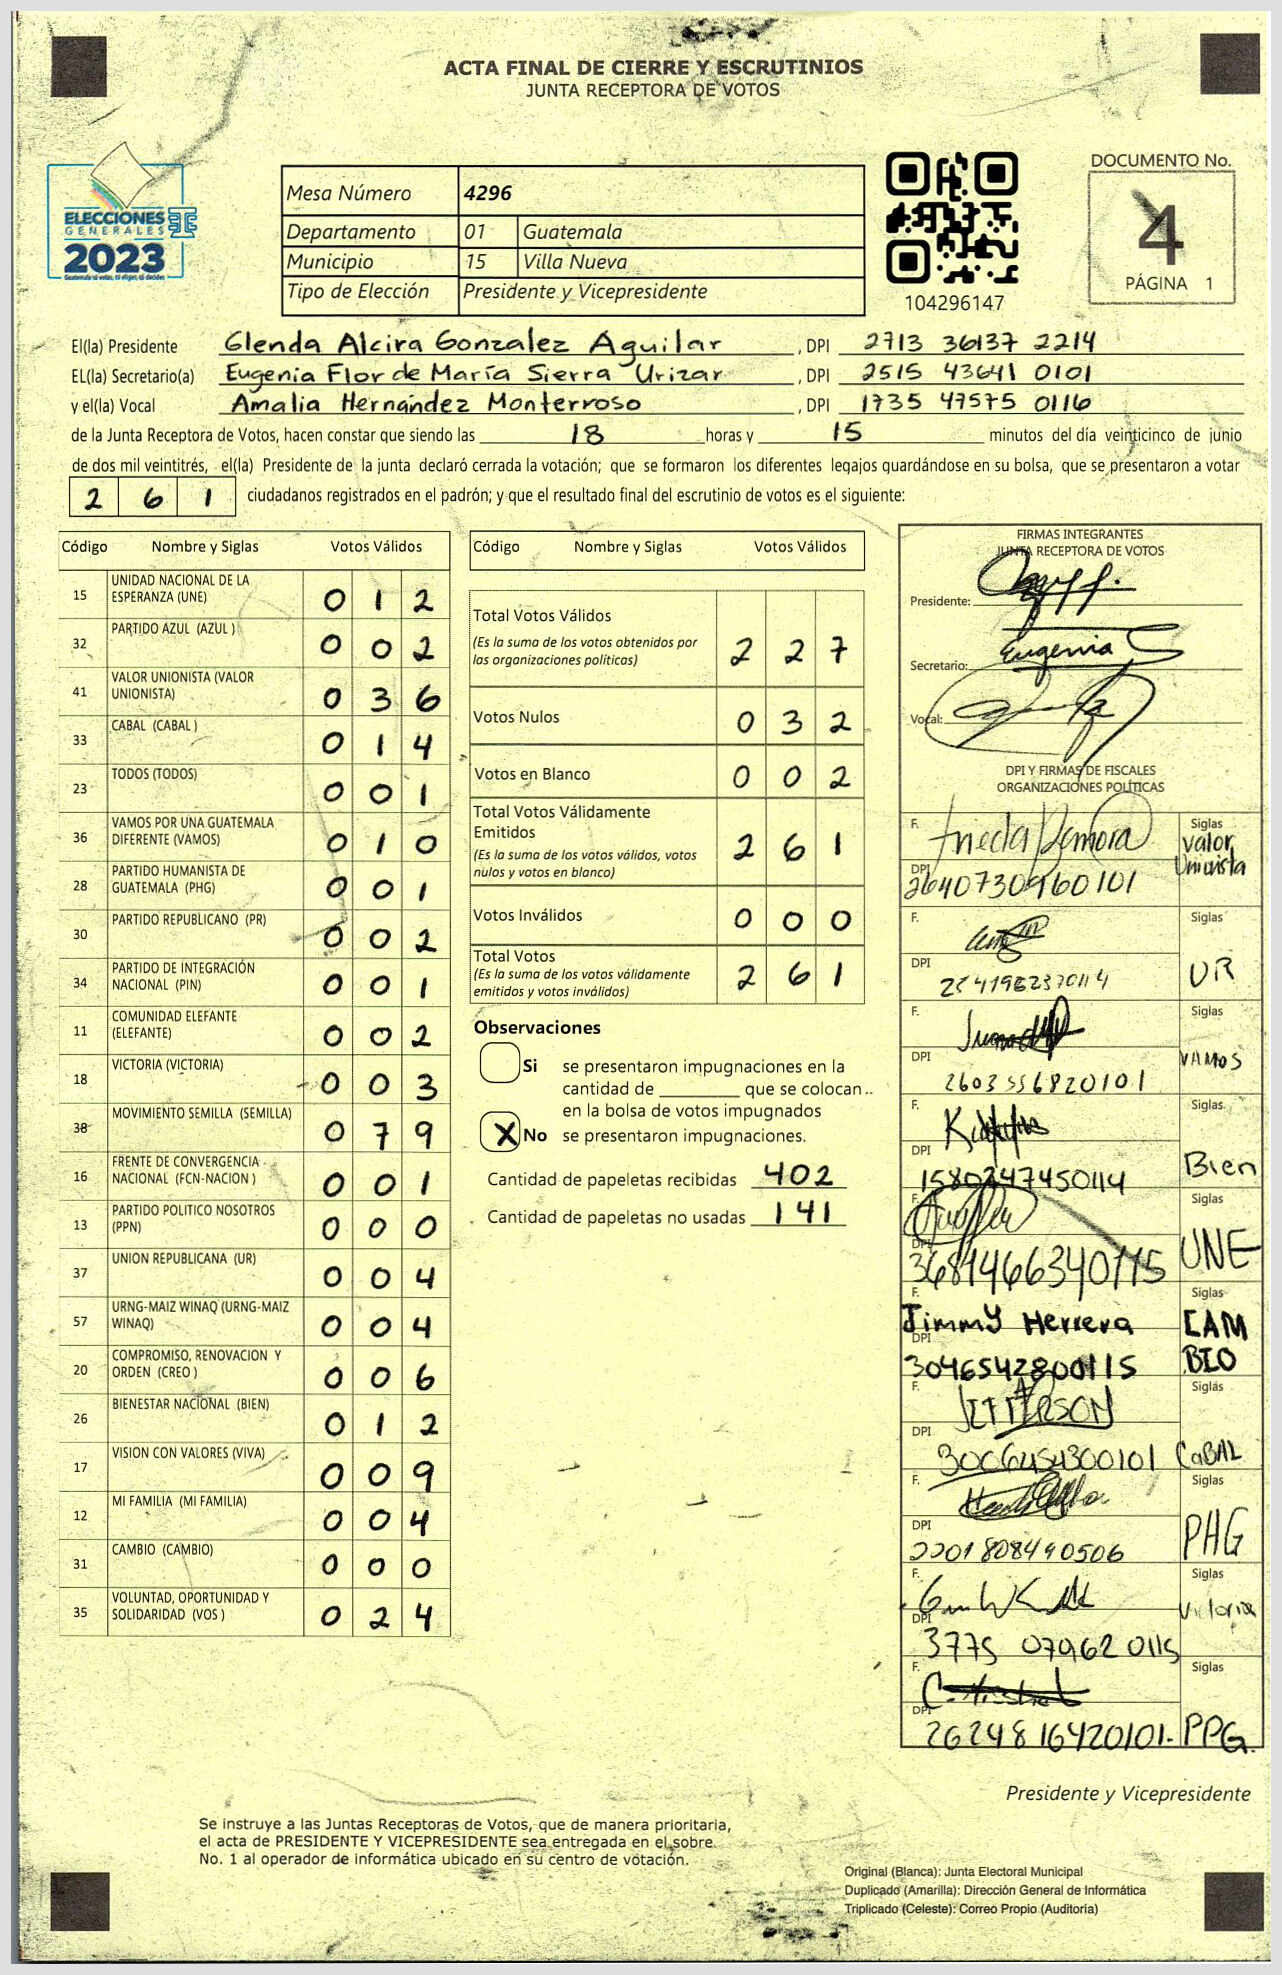 ACTA FINAL DE CIERRE Y ESCRUTINIOS
JUNTA RECEPTORA DE VOTOS
ELECCIONES
GENERALES
2023
Guatemala tú votas, tú eliges, tú decides
Mesa Número 4296
Departamento 01 Guatemala
Municipio 15 Villa Nueva
Tipo de Elección Presidente y Vicepresidente
104296147
DOCUMENTO No.
4
PÁGINA 1
El(la) Presidente Glenda Alcira Gonzalez Aguilar, DPI 2713 36137 2214
EL(la) Secretario(a) Eugenia Flor de María Sierra Urizar, DPI 2515 43641 0101
y el(la) Vocal Amalia Hernández Monterroso, DPI 1735 47575 0116
de la Junta Receptora de Votos, hacen constar que siendo las 18 horas y 15 minutos del día veinticinco de junio
de dos mil veintitrés, el(la) Presidente de la junta declaró cerrada la votación; que se formaron los diferentes legajos guardándose en su bolsa, que se presentaron a votar
2 6 1 ciudadanos registrados en el padrón; y que el resultado final del escrutinio de votos es el siguiente:
Código Nombre y Siglas Votos Válidos
15 UNIDAD NACIONAL DE LA ESPERANZA (UNE) 0 1 2
32 PARTIDO AZUL (AZUL ) 0 0 2
41 VALOR UNIONISTA (VALOR UNIONISTA) 0 3 6
33 CABAL (CABAL ) 0 1 4
23 TODOS (TODOS) 0 0 1
36 VAMOS POR UNA GUATEMALA DIFERENTE (VAMOS) 0 1 0
28 PARTIDO HUMANISTA DE GUATEMALA (PHG) 0 0 1
30 PARTIDO REPUBLICANO (PR) 0 0 2
34 PARTIDO DE INTEGRACIÓN NACIONAL (PIN) 0 0 1
11 COMUNIDAD ELEFANTE (ELEFANTE) 0 0 2
18 VICTORIA (VICTORIA) 0 0 3
38 MOVIMIENTO SEMILLA (SEMILLA) 0 7 9
16 FRENTE DE CONVERGENCIA NACIONAL (FCN-NACION ) 0 0 1
13 PARTIDO POLITICO NOSOTROS (PPN) 0 0 0
37 UNION REPUBLICANA (UR) 0 0 4
57 URNG-MAIZ WINAQ (URNG-MAIZ WINAQ) 0 0 4
20 COMPROMISO, RENOVACION Y ORDEN (CREO ) 0 0 6
26 BIENESTAR NACIONAL (BIEN) 0 1 2
17 VISION CON VALORES (VIVA) 0 0 9
12 MI FAMILIA (MI FAMILIA) 0 0 4
31 CAMBIO (CAMBIO) 0 0 0
35 VOLUNTAD, OPORTUNIDAD Y SOLIDARIDAD (VOS ) 0 2 4
Código Nombre y Siglas Votos Válidos
Total Votos Válidos
(Es la suma de los votos obtenidos por
las organizaciones políticas) 2 2 7
Votos Nulos 0 3 2
Votos en Blanco 0 0 2
Total Votos Válidamente
Emitidos
(Es la suma de los votos válidos, votos
nulos y votos en blanco) 2 6 1
Votos Inválidos 0 0 0
Total Votos
(Es la suma de los votos válidamente
emitidos y votos inválidos) 2 6 1
Observaciones
Si se presentaron impugnaciones en la
cantidad de ________ que se colocan
en la bolsa de votos impugnados
X No se presentaron impugnaciones.
Cantidad de papeletas recibidas 402
Cantidad de papeletas no usadas 141
FIRMAS INTEGRANTES
JUNTA RECEPTORA DE VOTOS
Presidente:
Secretario: Eugenia S
Vocal:
DPI Y FIRMAS DE FISCALES
ORGANIZACIONES POLÍTICAS
F. Siglas
Valor
Unionista
DPI 2640730960101
F. Siglas
DPI UR
F. Siglas
DPI VAMOS
2603556820101
F. Siglas
DPI Bien
1580247450114
F. Siglas
DPI UNE
3681466340115
F. Siglas
Jimmy Herrera CAM
DPI BIO
3046542800115
F. JEFFERSON Siglas
DPI
3006454300101 CaBAL
F. Siglas
DPI PHG
2201808490506
F. Siglas
DPI Victoria
3775 07962 0115
F. Siglas
DPI
2624816420101. PPG.
Presidente y Vicepresidente
Se instruye a las Juntas Receptoras de Votos, que de manera prioritaria,
el acta de PRESIDENTE Y VICEPRESIDENTE sea entregada en el sobre
No. 1 al operador de informática ubicado en su centro de votación.
Original (Blanca): Junta Electoral Municipal
Duplicado (Amarilla): Dirección General de Informática
Triplicado (Celeste): Correo Propio (Auditoría)